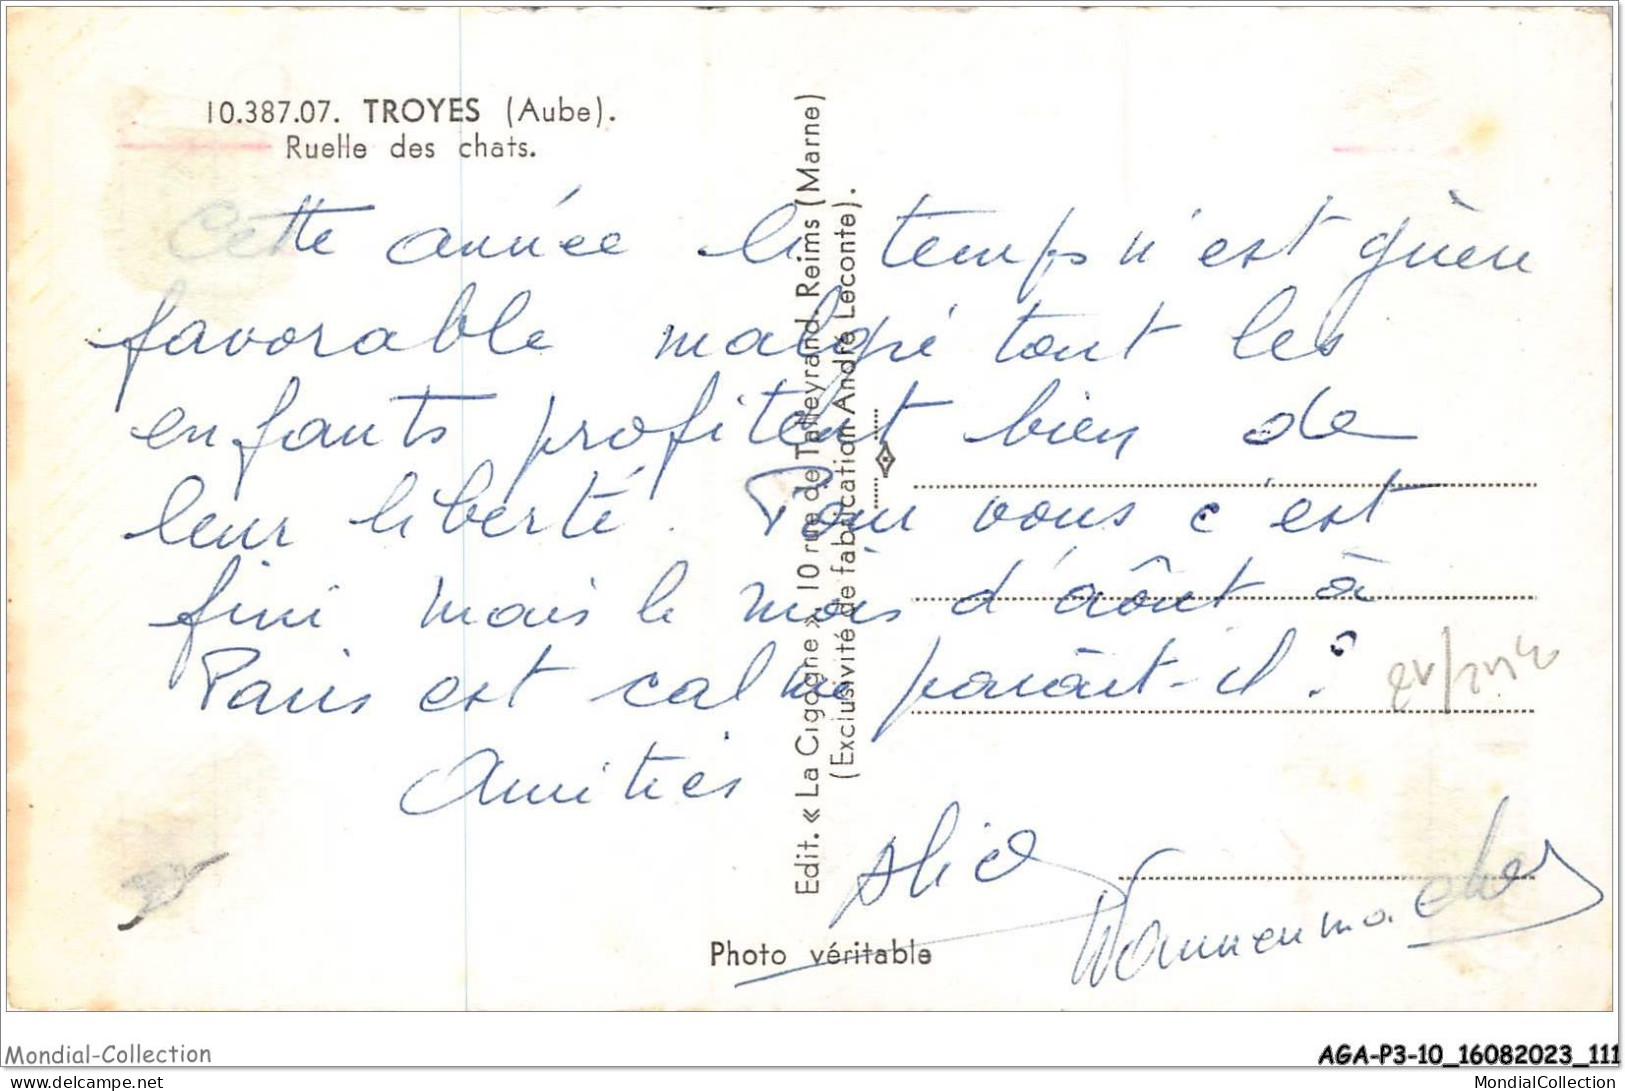 10.387.07. TROYES (Aube).
Ruelle des chats.
Cette année le temps n'est guère
favorable malgré tout les
enfants profitent bien de
leur liberté. Pour vous c'est
fini mais le mois d'août à
Paris est calme paraît-il ?
Amitiés
Alice
Wannenmacher
Edit. « La Cigogne », 10 rue de Talleyrand. Reims (Marne)
(Exclusivité de fabrication André Leconte).
Photo véritable
Mondial-Collection
AGA-P3-10_16082023_111
www.delcampe.net
MondialCollection